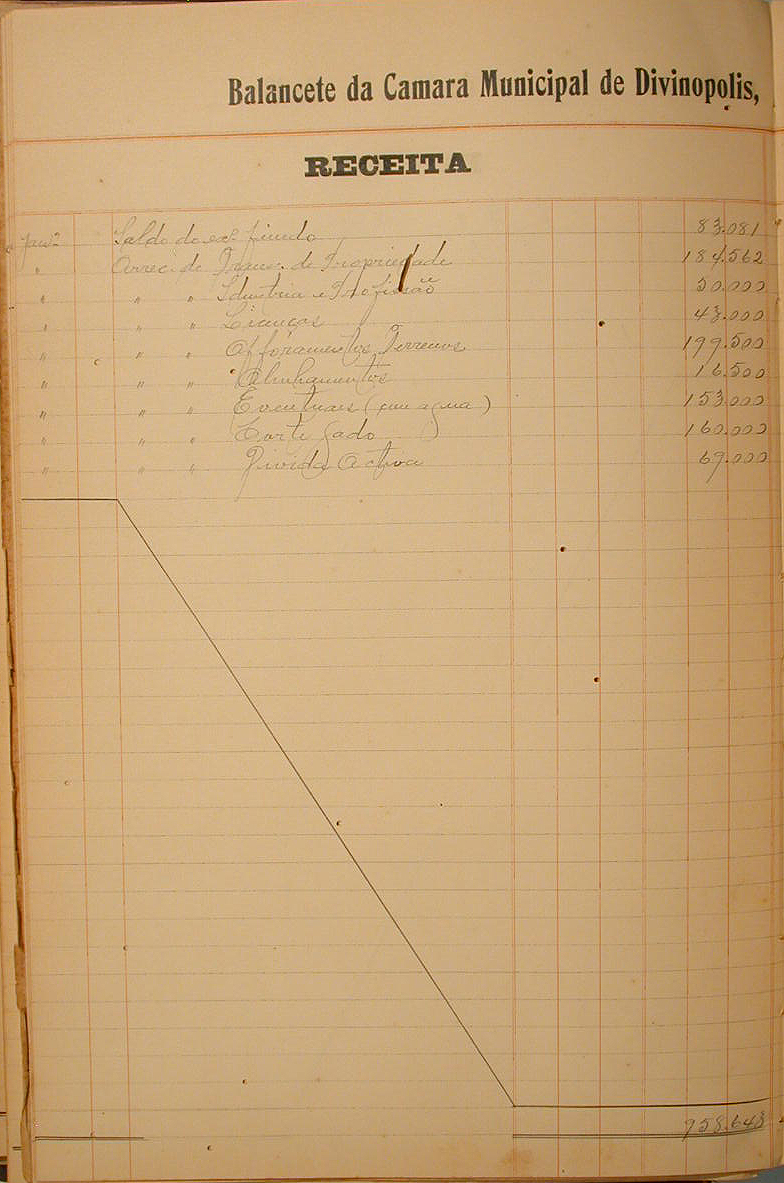 Balancete da Camara Municipal de Divinopolis,
RECEITA
Janº Saldo do exº findo 83.081
" Arrec. de Trans. de Propriedade 184.562
" " " Idustria e Profissão 50.000
" " " Licenças 43.000
" " " Afforamentos Terrenos 199.500
" " " Alinhamentos 16.500
" " " Eventuaes (pena agua) 153.000
" " " Corte gado 160.000
" " " Divida Activa 69.000
958.643